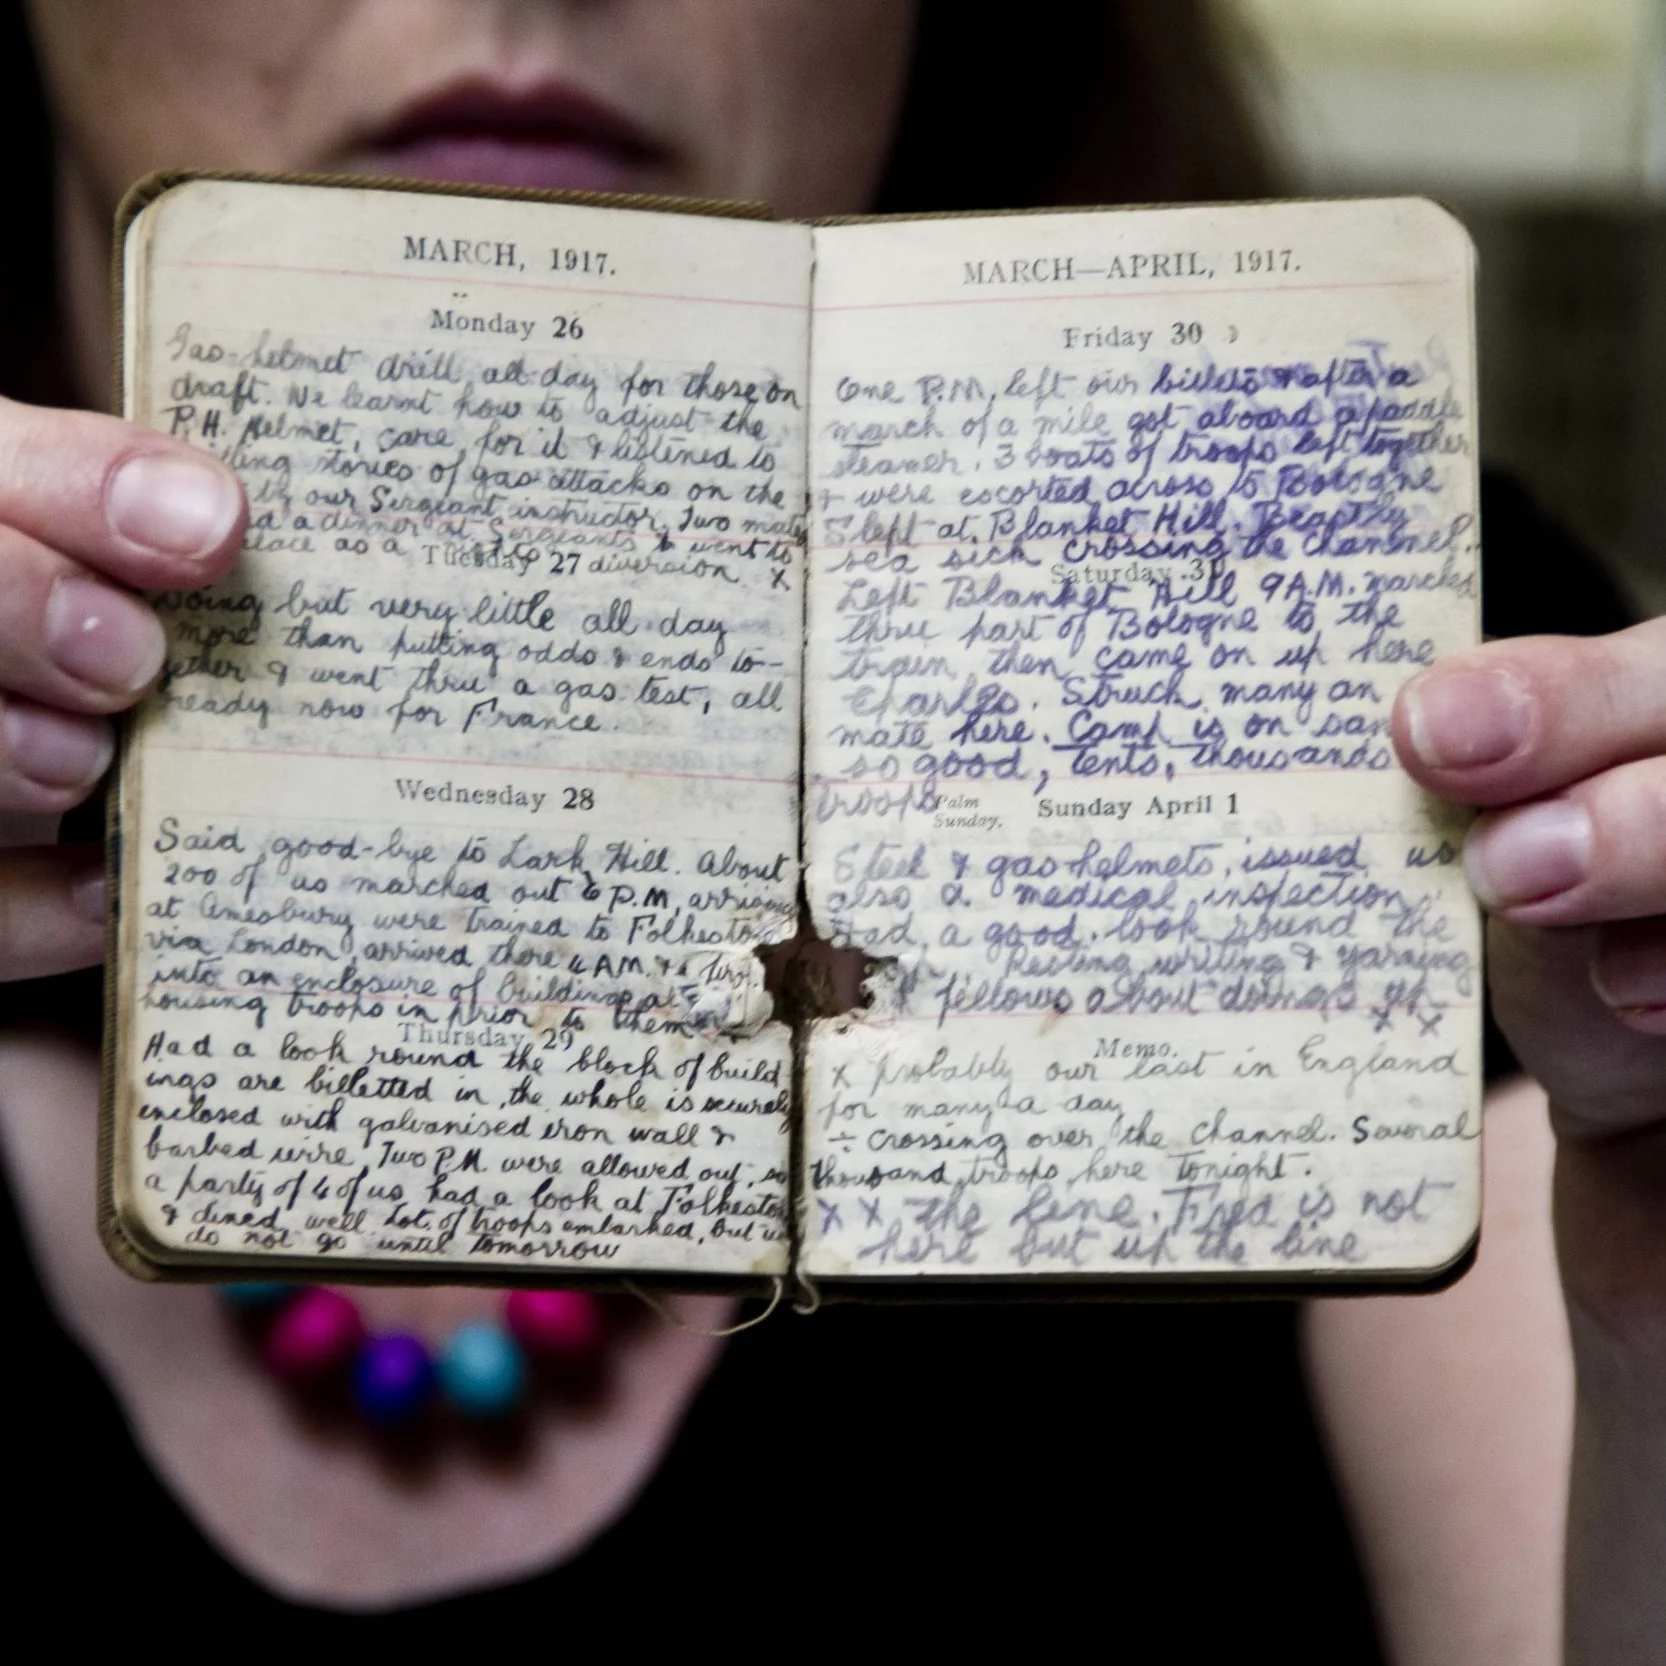 MARCH, 1917.
Monday 26
Gas-helmet drill all day for those on
draft. We learnt how to adjust the
P.H. Helmet, care for it & listened to
stories of gas attacks on the
by our Sergeant instructor. Two mates
a dinner at Sergeants & went to
as a diversion. x
Tuesday 27
Doing but very little all day
more than putting odds & ends to-
gether & went thru a gas test, all
ready now for France.
Wednesday 28
Said good-bye to Lark Hill. About
200 of us marched out 6 P.M, arriving
at Amesbury were trained to Folkestone
via London, arrived there 4 AM. &
into an enclosure of buildings at
housing troops in prior to them
Thursday 29
Had a look round the block of build
ings are billetted in, the whole is securely
inclosed with galvanised iron wall &
barbed wire. Two P.M. were allowed out, so
a party of 4 of us had a look at Folkestone
& dined well. Lot of troops embarked, but we
do not go until tomorrow
MARCH—APRIL, 1917.
Friday 30
One P.M, left our billets & after a
march of a mile got aboard a paddle
steamer. 3 boats of troops left together
& were escorted across to Bologne
Slept at Blanket Hill. Beastly
sea sick crossing the Channel.
Saturday 31
Left Blanket Hill 9 A.M. marched
thru part of Bologne to the
train, then came on up here
Struck many an
mate here. Camp is on
so good, tents, thousands
troops
Palm
Sunday.
Sunday April 1
Steel & gas helmets, issued us
also a medical inspection.
Had a good look round the
Resting, writing & yarning
fellows about doings up
x x
Memo.
x probably our last in England
for many a day
÷ crossing over the Channel. Several
thousand troops here tonight.
x x the line. Fred is not
here but up the line